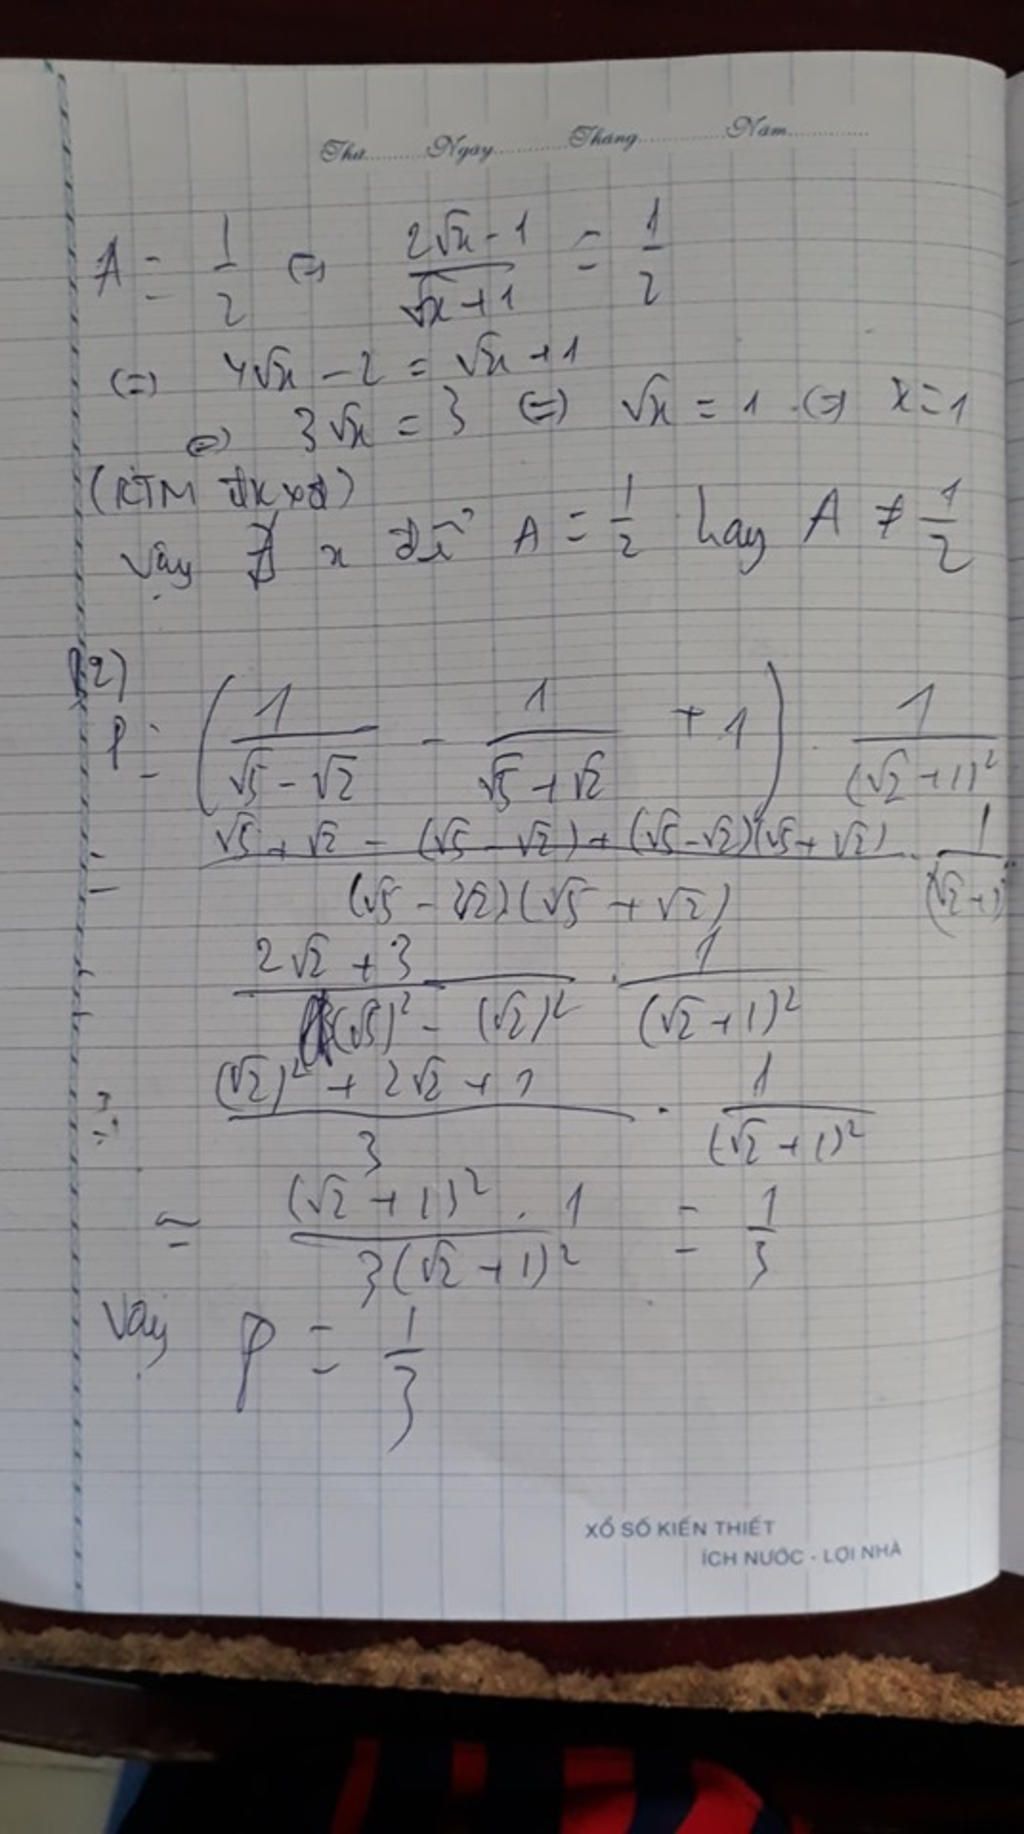 Thứ.........Ngày............Tháng............Năm............
A = 1/2 (=) (2√x - 1)/(√x + 1) = 1/2
(=) 4√x - 2 = √x + 1
(=) 3√x = 3 (=) √x = 1 (=) x = 1
(KTM đkxđ)
Vậy ∄ x để A = 1/2 hay A ≠ 1/2
2)
P = (1/(√5 - √2) - 1/(√5 + √2) + 1) . 1/(√2 + 1)²
= (√5 + √2 - (√5 - √2) + (√5 - √2)(√5 + √2))/((√5 - √2)(√5 + √2)) . 1/(√2 + 1)
= (2√2 + 3)/((√5)² - (√2)²) . 1/(√2 + 1)²
= ((√2)² + 2√2 + 1)/3 . 1/(√2 + 1)²
= ((√2 + 1)² . 1)/(3(√2 + 1)²) = 1/3
Vậy P = 1/3
XỔ SỐ KIẾN THIẾT
ÍCH NƯỚC - LỢI NHÀ